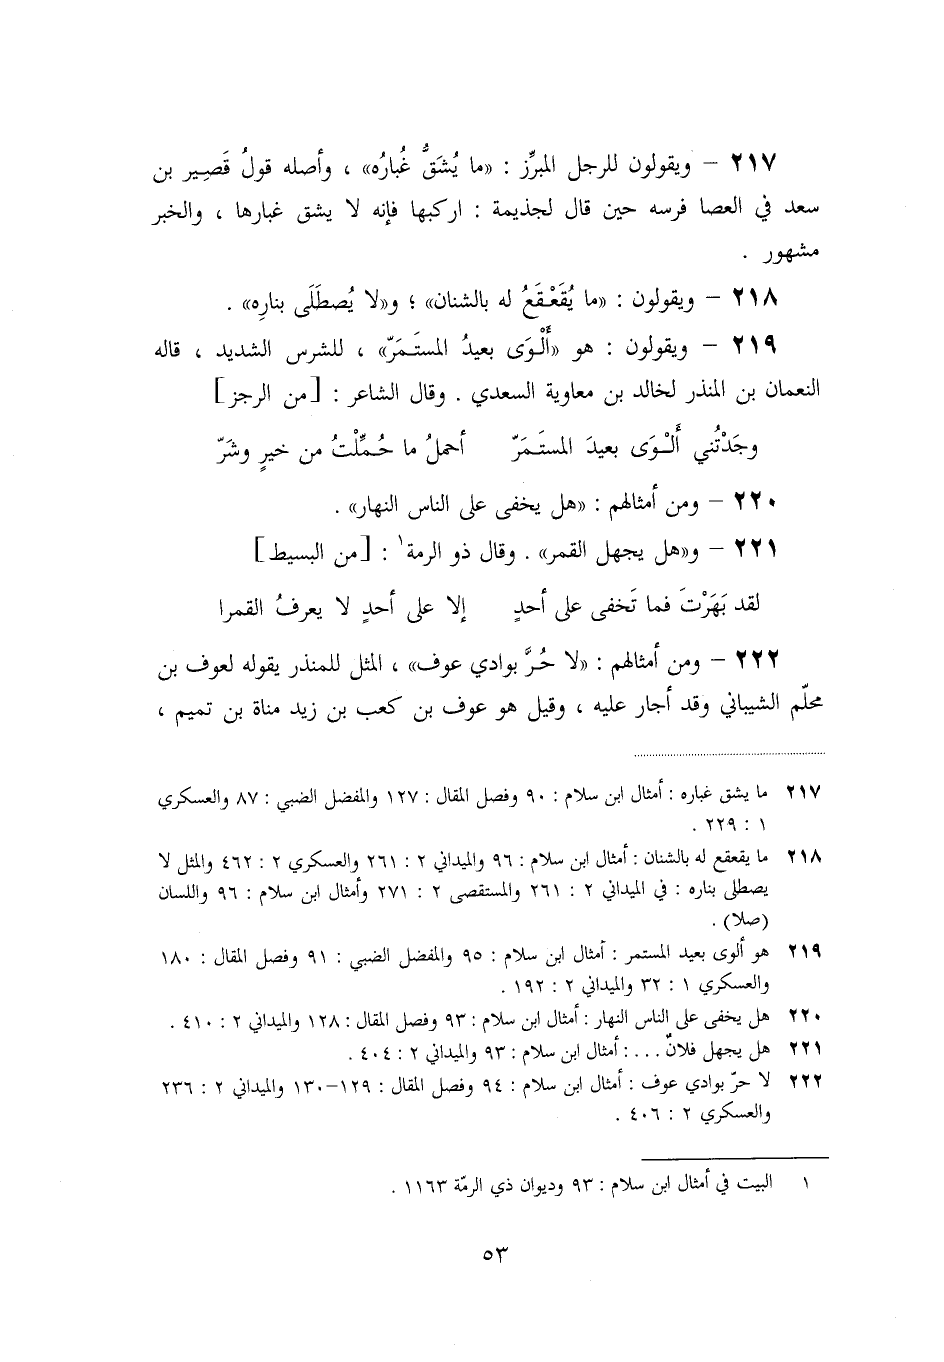 ٢١٧ – ويقولون للرجل المبرِّز : «ما يُشَقُّ غُبارُه» ، وأصله قولُ قَصِير بن
سعد في العصا فرسه حين قال لجذيمة : اركبها فإنه لا يشق غبارها ، والخبر
مشهور .
٢١٨ – ويقولون : «ما يُقَعْقَعُ له بالشنان» ؛ و«لا يُصطَلَى بنارِه» .
٢١٩ – ويقولون : هو «أَلْوَى بعيدُ المستَمَرّ» ، للشرس الشديد ، قاله
النعمان بن المنذر لخالد بن معاوية السعدي . وقال الشاعر : [من الرجز]
وجَدْتُني أَلْوَى بعيدَ المستَمَرّ أحملُ ما حُمِّلْتُ من خيرٍ وشَرّ
٢٢٠ – ومن أمثالهم : «هل يخفى على الناس النهار» .
٢٢١ – و«هل يجهل القمر» . وقال ذو الرمة١ : [من البسيط]
لقد بَهَرْتَ فما تَخفى على أحدٍ إلا على أحدٍ لا يعرفُ القمرا
٢٢٢ – ومن أمثالهم : «لا حُرَّ بوادي عوف» ، المثل للمنذر يقوله لعوف بن
محلّم الشيباني وقد أجار عليه ، وقيل هو عوف بن كعب بن زيد مناة بن تميم ،
٢١٧ ما يشق غباره : أمثال ابن سلام : ٩٠ وفصل المقال : ١٢٧ والمفضل الضبي : ٨٧ والعسكري
١ : ٢٢٩ .
٢١٨ ما يقعقع له بالشنان : أمثال ابن سلام : ٩٦ والميداني ٢ : ٢٦١ والعسكري ٢ : ٤٦٢ والمثل لا
يصطلى بناره : في الميداني ٢ : ٢٦١ والمستقصى ٢ : ٢٧١ وأمثال ابن سلام : ٩٦ واللسان
(صلا) .
٢١٩ هو ألوى بعيد المستمر : أمثال ابن سلام : ٩٥ والمفضل الضبي : ٩١ وفصل المقال : ١٨٠
والعسكري ١ : ٣٢ والميداني ٢ : ١٩٢ .
٢٢٠ هل يخفى على الناس النهار : أمثال ابن سلام : ٩٣ وفصل المقال : ١٢٨ والميداني ٢ : ٤١٠ .
٢٢١ هل يجهل فلانٌ ... : أمثال ابن سلام : ٩٣ والميداني ٢ : ٤٠٤ .
٢٢٢ لا حرّ بوادي عوف : أمثال ابن سلام : ٩٤ وفصل المقال : ١٢٩–١٣٠ والميداني ٢ : ٢٣٦
والعسكري ٢ : ٤٠٦ .
١ البيت في أمثال ابن سلام : ٩٣ وديوان ذي الرمّة ١١٦٣ .
٥٣